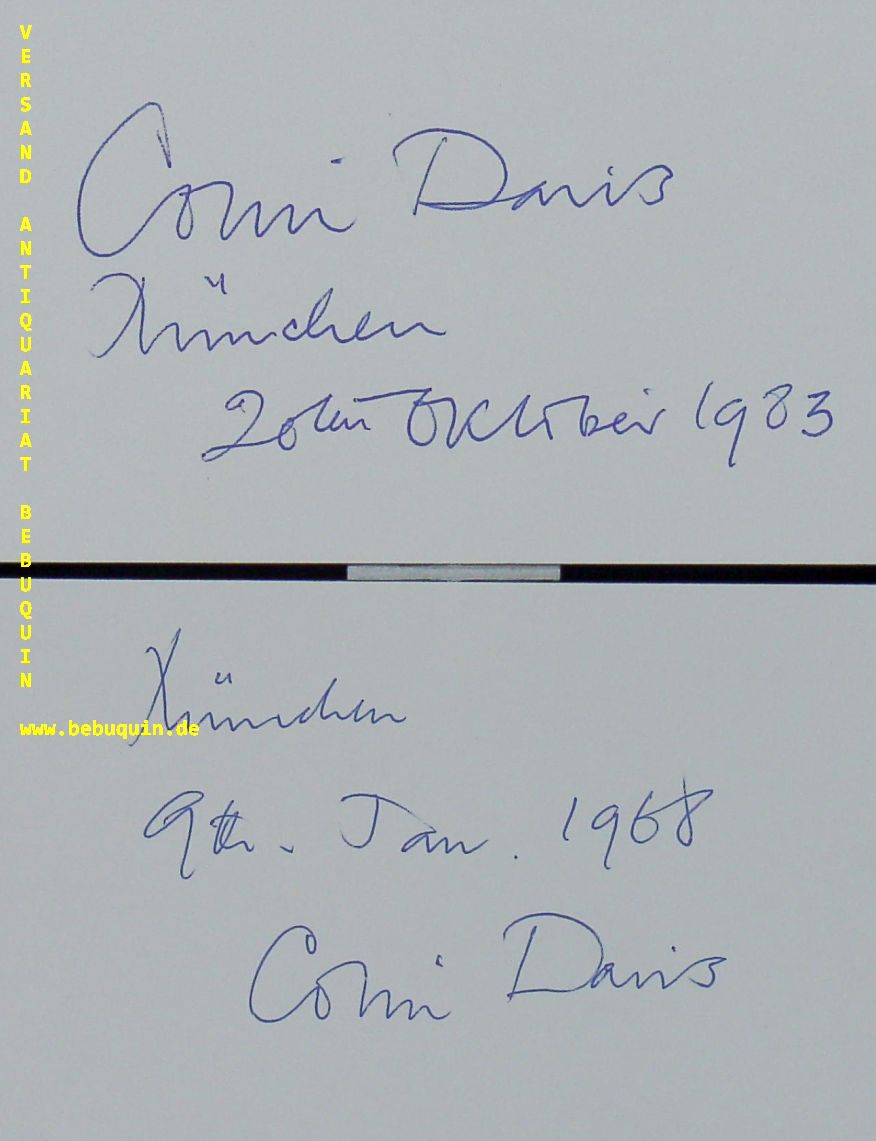 VERSAND ANTIQUARIAT BEBUQUIN
www.bebuquin.de
Colin Davis
München
20th Oktober 1983
München
9th. Jan. 1968
Colin Davis